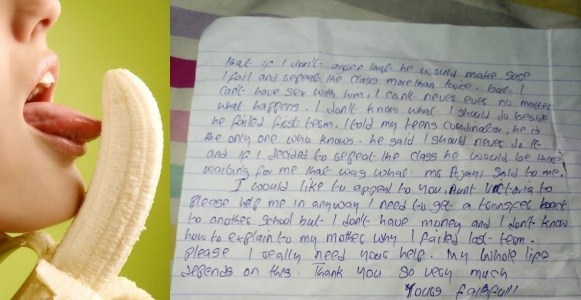 that if I don't agree that he would make sure
I fail and repeat the class more than twice. but I
can't have sex with him, I can't never ever no matter
what happens. I don't know what I should do beside
he failed first term. I told my teens coordinator, he is
the only one who knows. he said I should never do it
and if I decided to repeat the class he would be there
waiting for me that was what mr Ajani said to me.
I would like to appeal to you, Aunt Victoria to
please help me in anyway I need to get a transfer
to another school but I don't have money and I don't know
how to explain to my mother why I failed last term.
please I really need your help. My whole life
depends on this. Thank you so very much
Yours faithfull